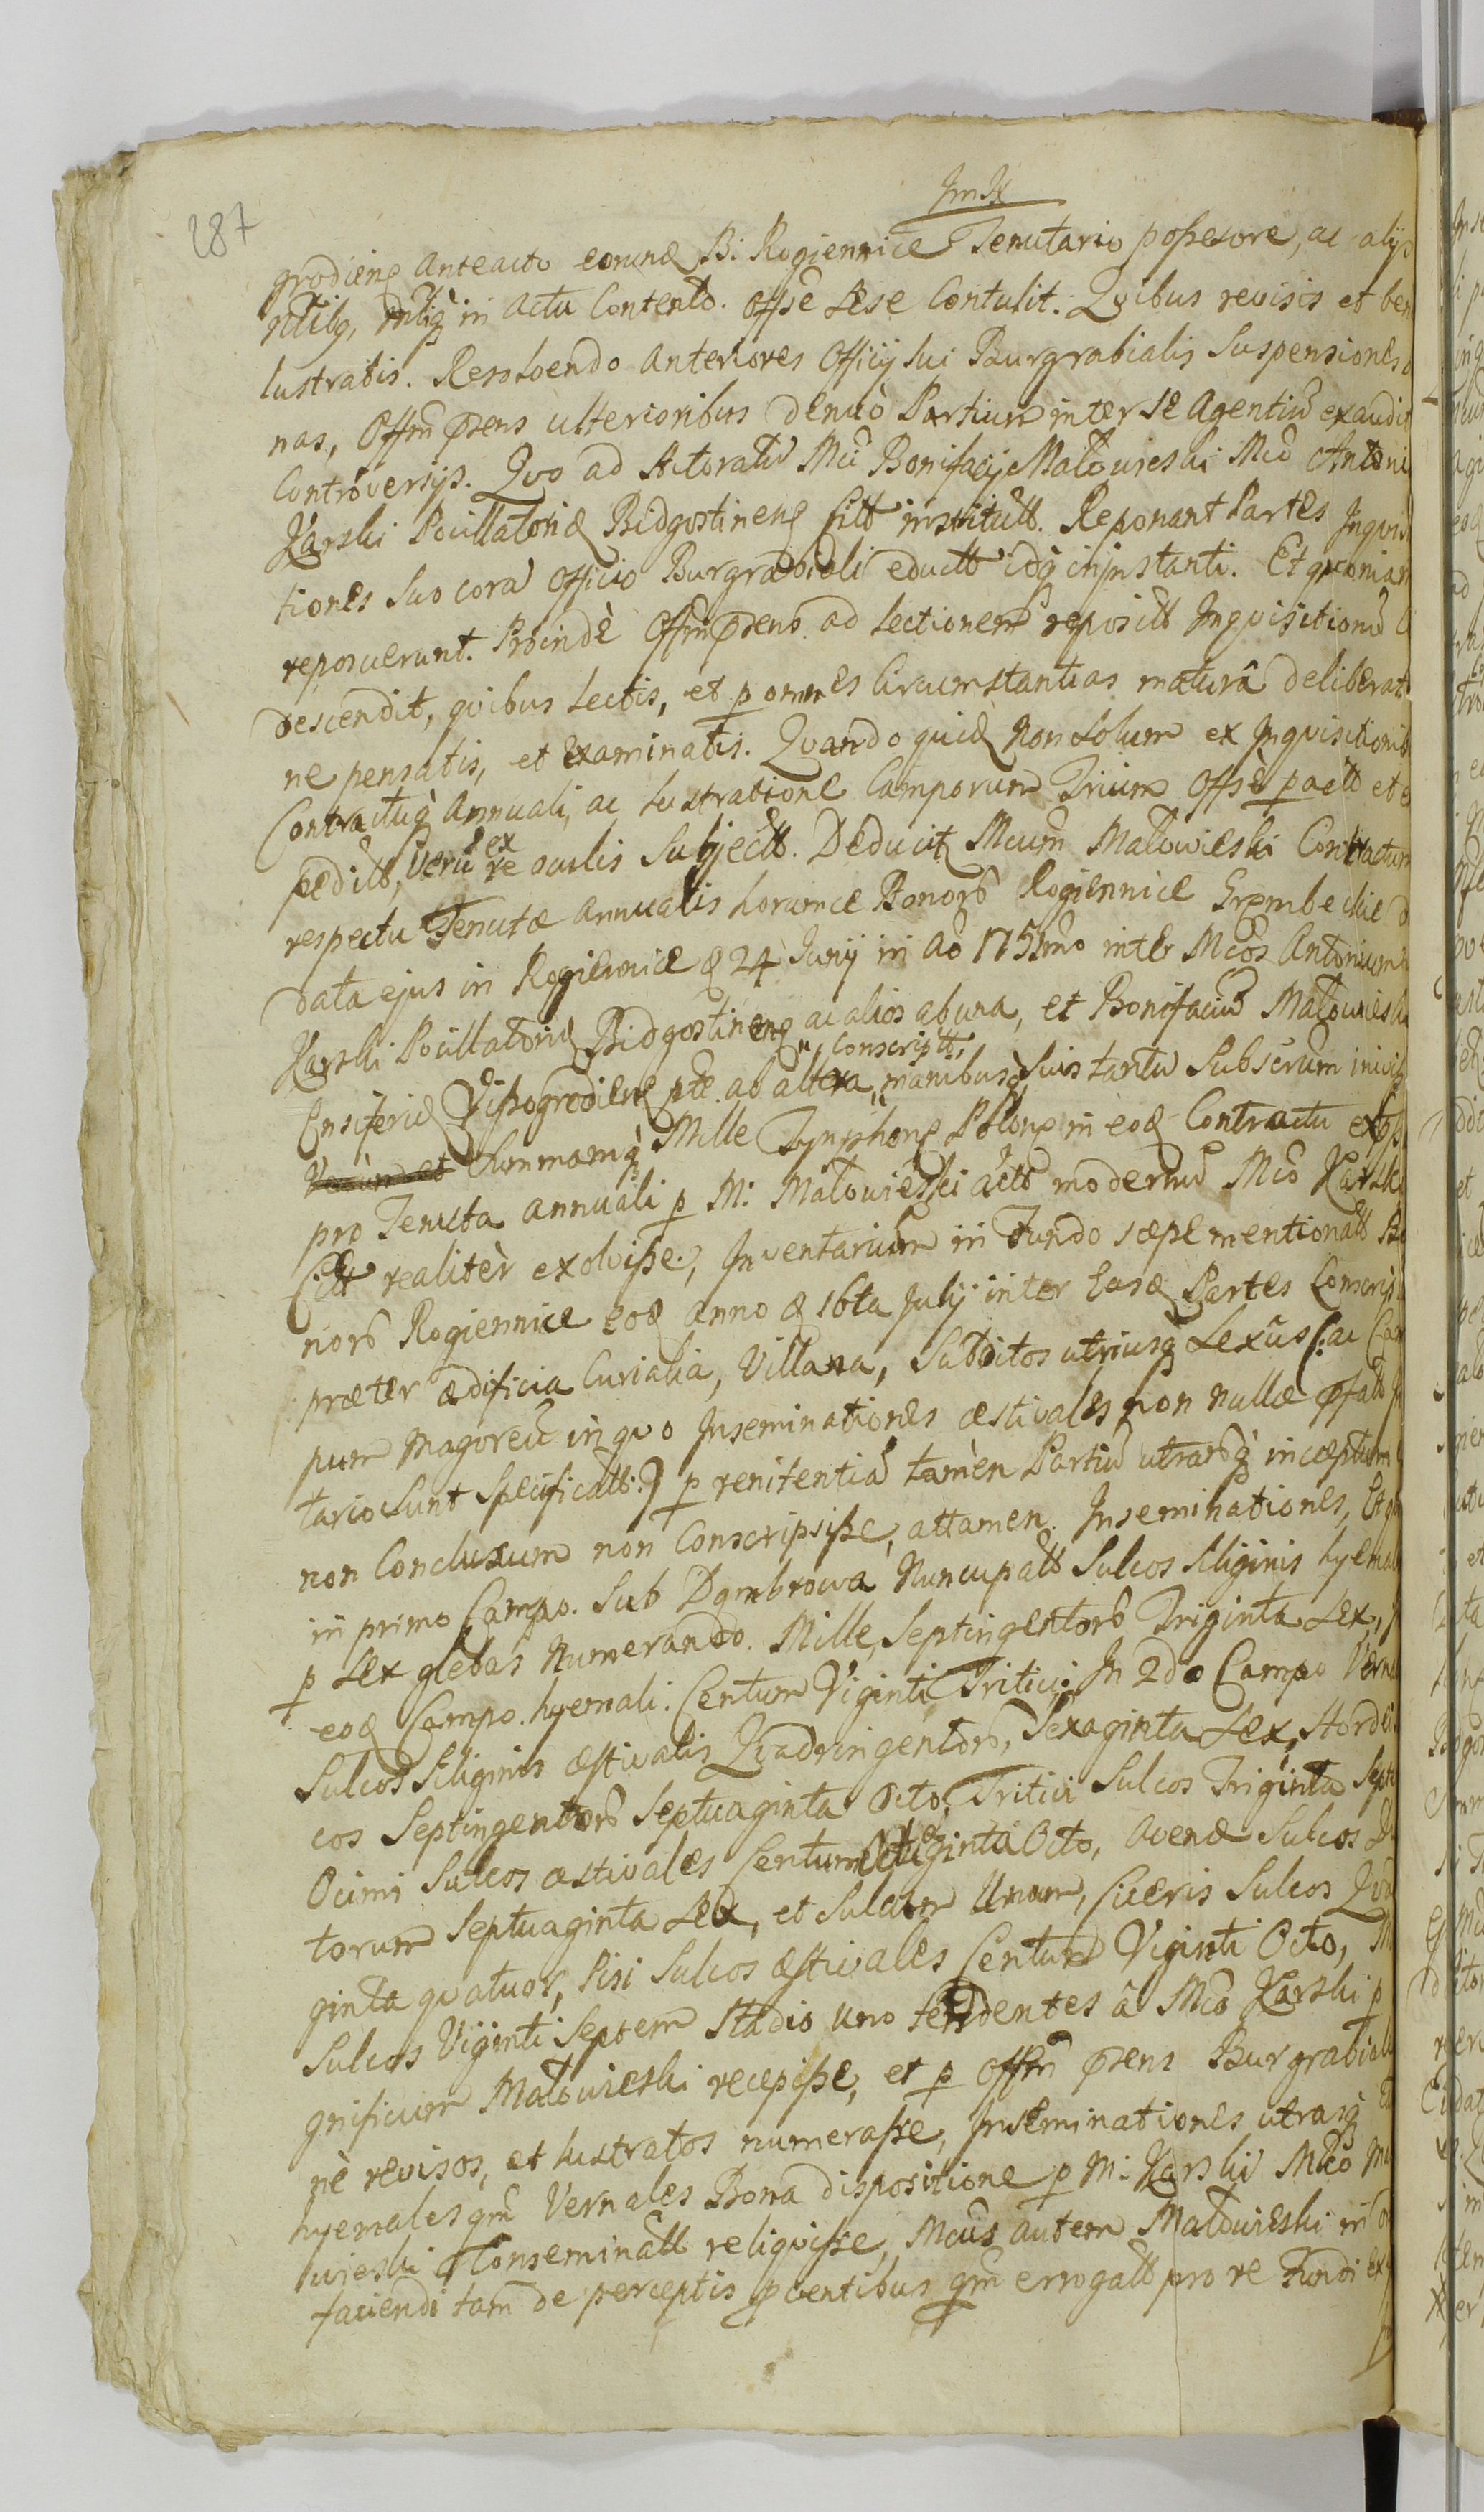 287
grodiens Anteacto eorund Bi: Rogiennice Tenutario possesore, ac alys
in actu Contento. Offse Sese Contulit. Quibus revisis et ben
lustratis. Resolvendo Anteriores Officij sui Burgrabialis Suspensiones
nas, Offm psens ulterioribus denuò Partium inter se Agentiu exaudit
Controversijs. Quo ad Actoratu Mci Bonifacij Matowieski Mco Antoni
Karski Pocillatorid Bidgostinens Citt institutt. Reponant Partes Inqvisi
tiones suo cora Officio Burgrabiali eductt idq in instanti. Et quoniam
reposuerunt. Proindè Offm psens ad Lectionem reposit Inqvisitionu
descendit, qvibus Lectis, et p omnes Circumstantias maturâ deliberati
ne pensatis, et Examinatis. Qvando quid Non Solum ex Inqvisitionib
Contractuq Annuali, ac Lustratione Camporum Trium Offsè pactt et e
peditt, Veru ex re oculis Subjectt. Deducit Mcum Matowieski Contractum
respectu Tenutæ Annualis horumce Bonors Rogiennice Grembeckie d
data ejus in Rogiennice d 24 Junij in Ao 1751mo inter Mcos Antonium
Karski Pocillatorid Bidgostinens ac alios ab una, et Bonifaciu Matowieski
Ensiferid Vissogrodiens pte ab altera, Conscriptt, manibusq Suis tantu Subscrum inivisse
Summamq Mille Tynphons Polons in eod Contractu expss
pro Tenuta annuali p M: Matowieski actt modernu Mco Karski
Citt realitèr exolvisse, Inventarium in Fundo sæpe mentionatt Bo
nors Rogiennice eod anno d 16ta Julij inter Easd Partes Conscrip
præter ædificia Curialia, Villana, Subditos utriusq Sexûs (: ac Cam
pum Magoreu in qvo Inseminationes æstivales non nullæ pfatt In
tario Sunt Specificatt:) p renitentia tamèn Partiu utrarsq inceptum
non Conclusum non Conscripsisse, attamen Inseminationes, Et qm
in primo Campo. Sub Dąmbrowa Nuncupatt Sulcos Siliginis hyemal
p Sex glebas Numerando. Mille, Septingentors Triginta Sex,
eod Campo. hyemali. Centum Viginti, Tritici. In 2do Campo Verna
Sulcos Siliginis æstivalis Quadringentors, Sexaginta Sex, Hordei
cos Septingentors Septuaginta Octo, Tritici Sulcos Triginta Sept
Ocimi Sulcos æstivales Centum Octuaginta Octo, Avenæ Sulcos Du
torum Septuaginta Sex, et Sulcum Unum, Ciceris Sulcos Qva
ginta qvatuor, Pisi Sulcos æstivales Centum Viginti Octo, M
Sulcos Viginti Septem Stadio uno tendentes â Mco Karski p
gnificum Matowieski recepisse, et p Offm psens Burgrabiale
nè revisos, et Lustratos numerasse, Inseminationes utrasq ta
hyemales qm Vernales Bona dispositione p M: Karski Mco Ma
wieski Conseminatt reliqvisse, Mcus autem Matowieski in
faciendi tam de perceptis pventibus qm errogatt pro re Fundi ex